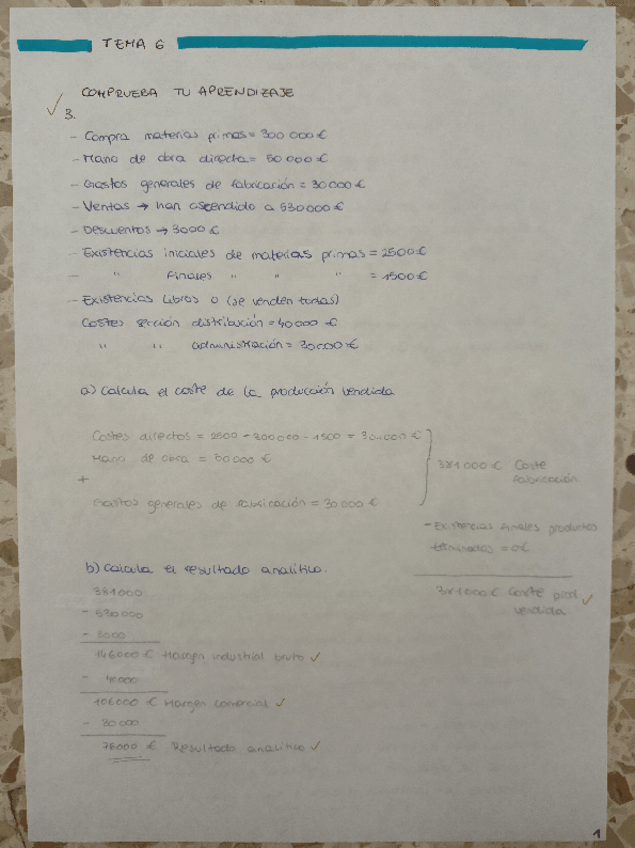 TEMA 6
COMPRUEBA TU APRENDIZAJE
✓ 3.
- Compra materias primas = 300 000 €
- Mano de obra directa = 50 000 €
- Gastos generales de fabricación = 30000 €
- Ventas → han ascendido a 530000 €
- Descuentos → 3000 €
- Existencias iniciales de materias primas = 2500 €
- " Finales " " " = 1500 €
- Existencias Libros 0 (se venden todas)
Costes sección distribución = 40000 €
" " administración = 30000 €
a) Calcula el coste de la producción vendida
Costes directos = 2500 - 300 000 - 1500 = 301000 €
Mano de obra = 50000 €
+
Gastos generales de fabricación = 30000 €
381000 € Coste
fabricación
- Existencias finales productos
terminados = 0€
381000 € Coste prod
vendida ✓
b) Calcula el resultado analítico.
381000
- 530000
- 3000
146000 € Margen industrial bruto ✓
- 40000
106000 € Margen comercial ✓
- 30000
76000 € Resultado analítico ✓
1